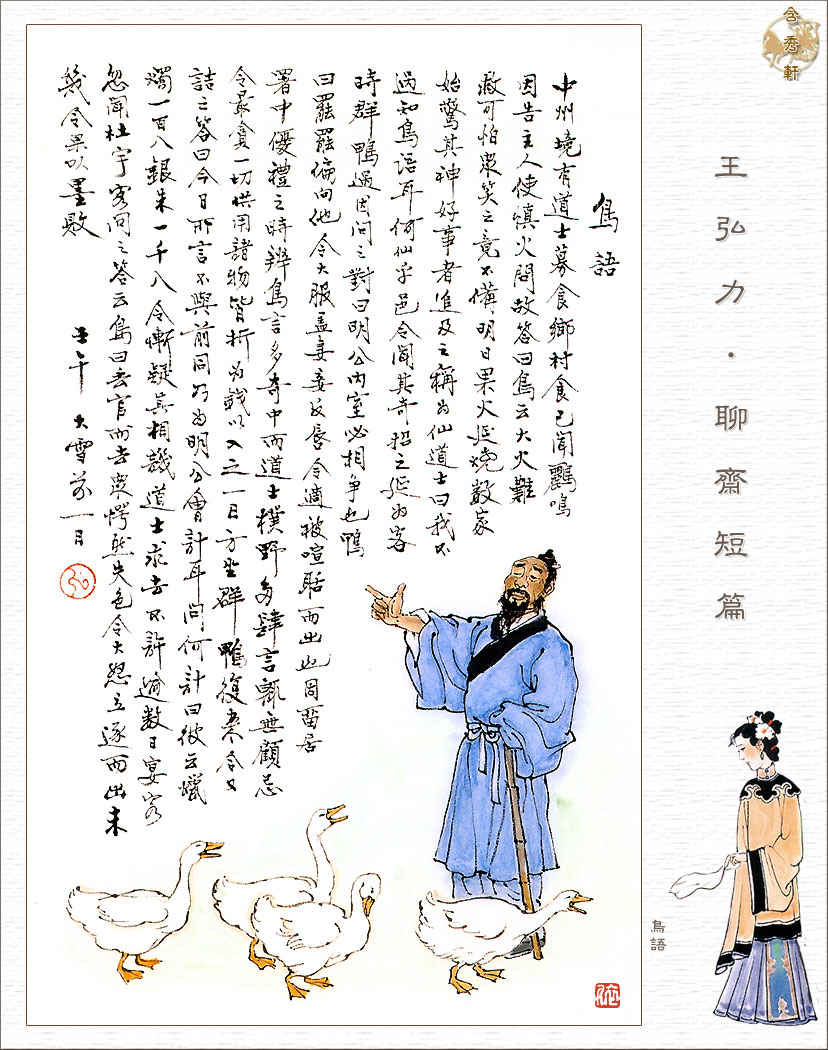 含秀軒
王弘力·聊齋短篇
鳥語
鳥語
中州境有道士募食鄉村食已聞鸝鳴
因告主人使慎火問故答曰鳥云大火難
救可怕眾笑之竟不備明日果火延燒數家
始驚其神好事者追及之稱為仙道士曰我不
過知鳥語耳何仙乎邑令聞其奇招之延為客
時群鴨過因問之對曰明公內室必相爭也鴨
曰罷罷偏向他令大服盖妻妾反唇令適被喧聒而出也因留居
署中優禮之時辨鳥言多奇中而道士樸野多肆言輒無顧忌
令最貪一切供用諸物皆折為錢以入之一日方坐群鴨復來令又
詰之答曰今日所言不與前同乃為明公會計耳問何計曰彼云蠟
燭一百八銀朱一千八令慚疑其相譏道士求去不許逾數日宴客
忽聞杜宇客問之答云鳥曰丟官而去眾愕然失色令大怒立逐而出未
幾令果以墨敗
壬午大雪前一日